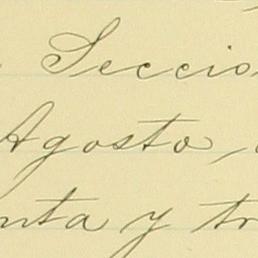 Seccio
Agosto,
nta y tr